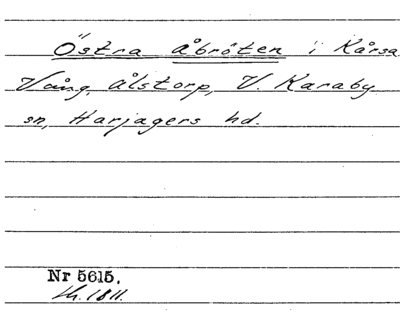 Östra Åbröten i Kårsa
Vång, Ålstorp, V. Karaby
sn, Harjagers hd.
Nr 5615.
1811.